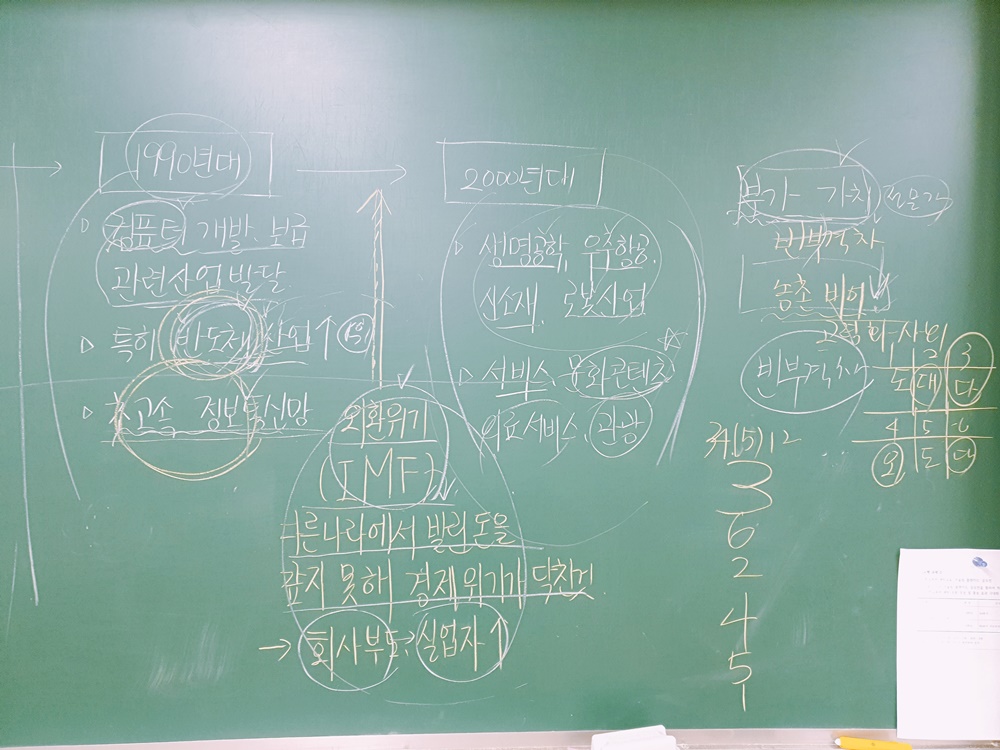 1990년대
▷ 컴퓨터 개발. 보급
관련산업 발달
▷ 특히 반도체 산업↑
▷ 초고속 정보통신망
외환위기
(IMF)
다른나라에서 빌린돈을
갚지 못해 경제위기가 닥친것
→ 회사부도, 실업자↑
2000년대
▷ 생명공학, 우주항공,
신소재, 로봇산업
▷ 서비스 문화콘텐츠
의료서비스, 관광
부가 가치
빈부격차
농촌
빈부격차
1 2 3
도 대 다
4 5 6
오 도 다
3
6
2
4
5
1